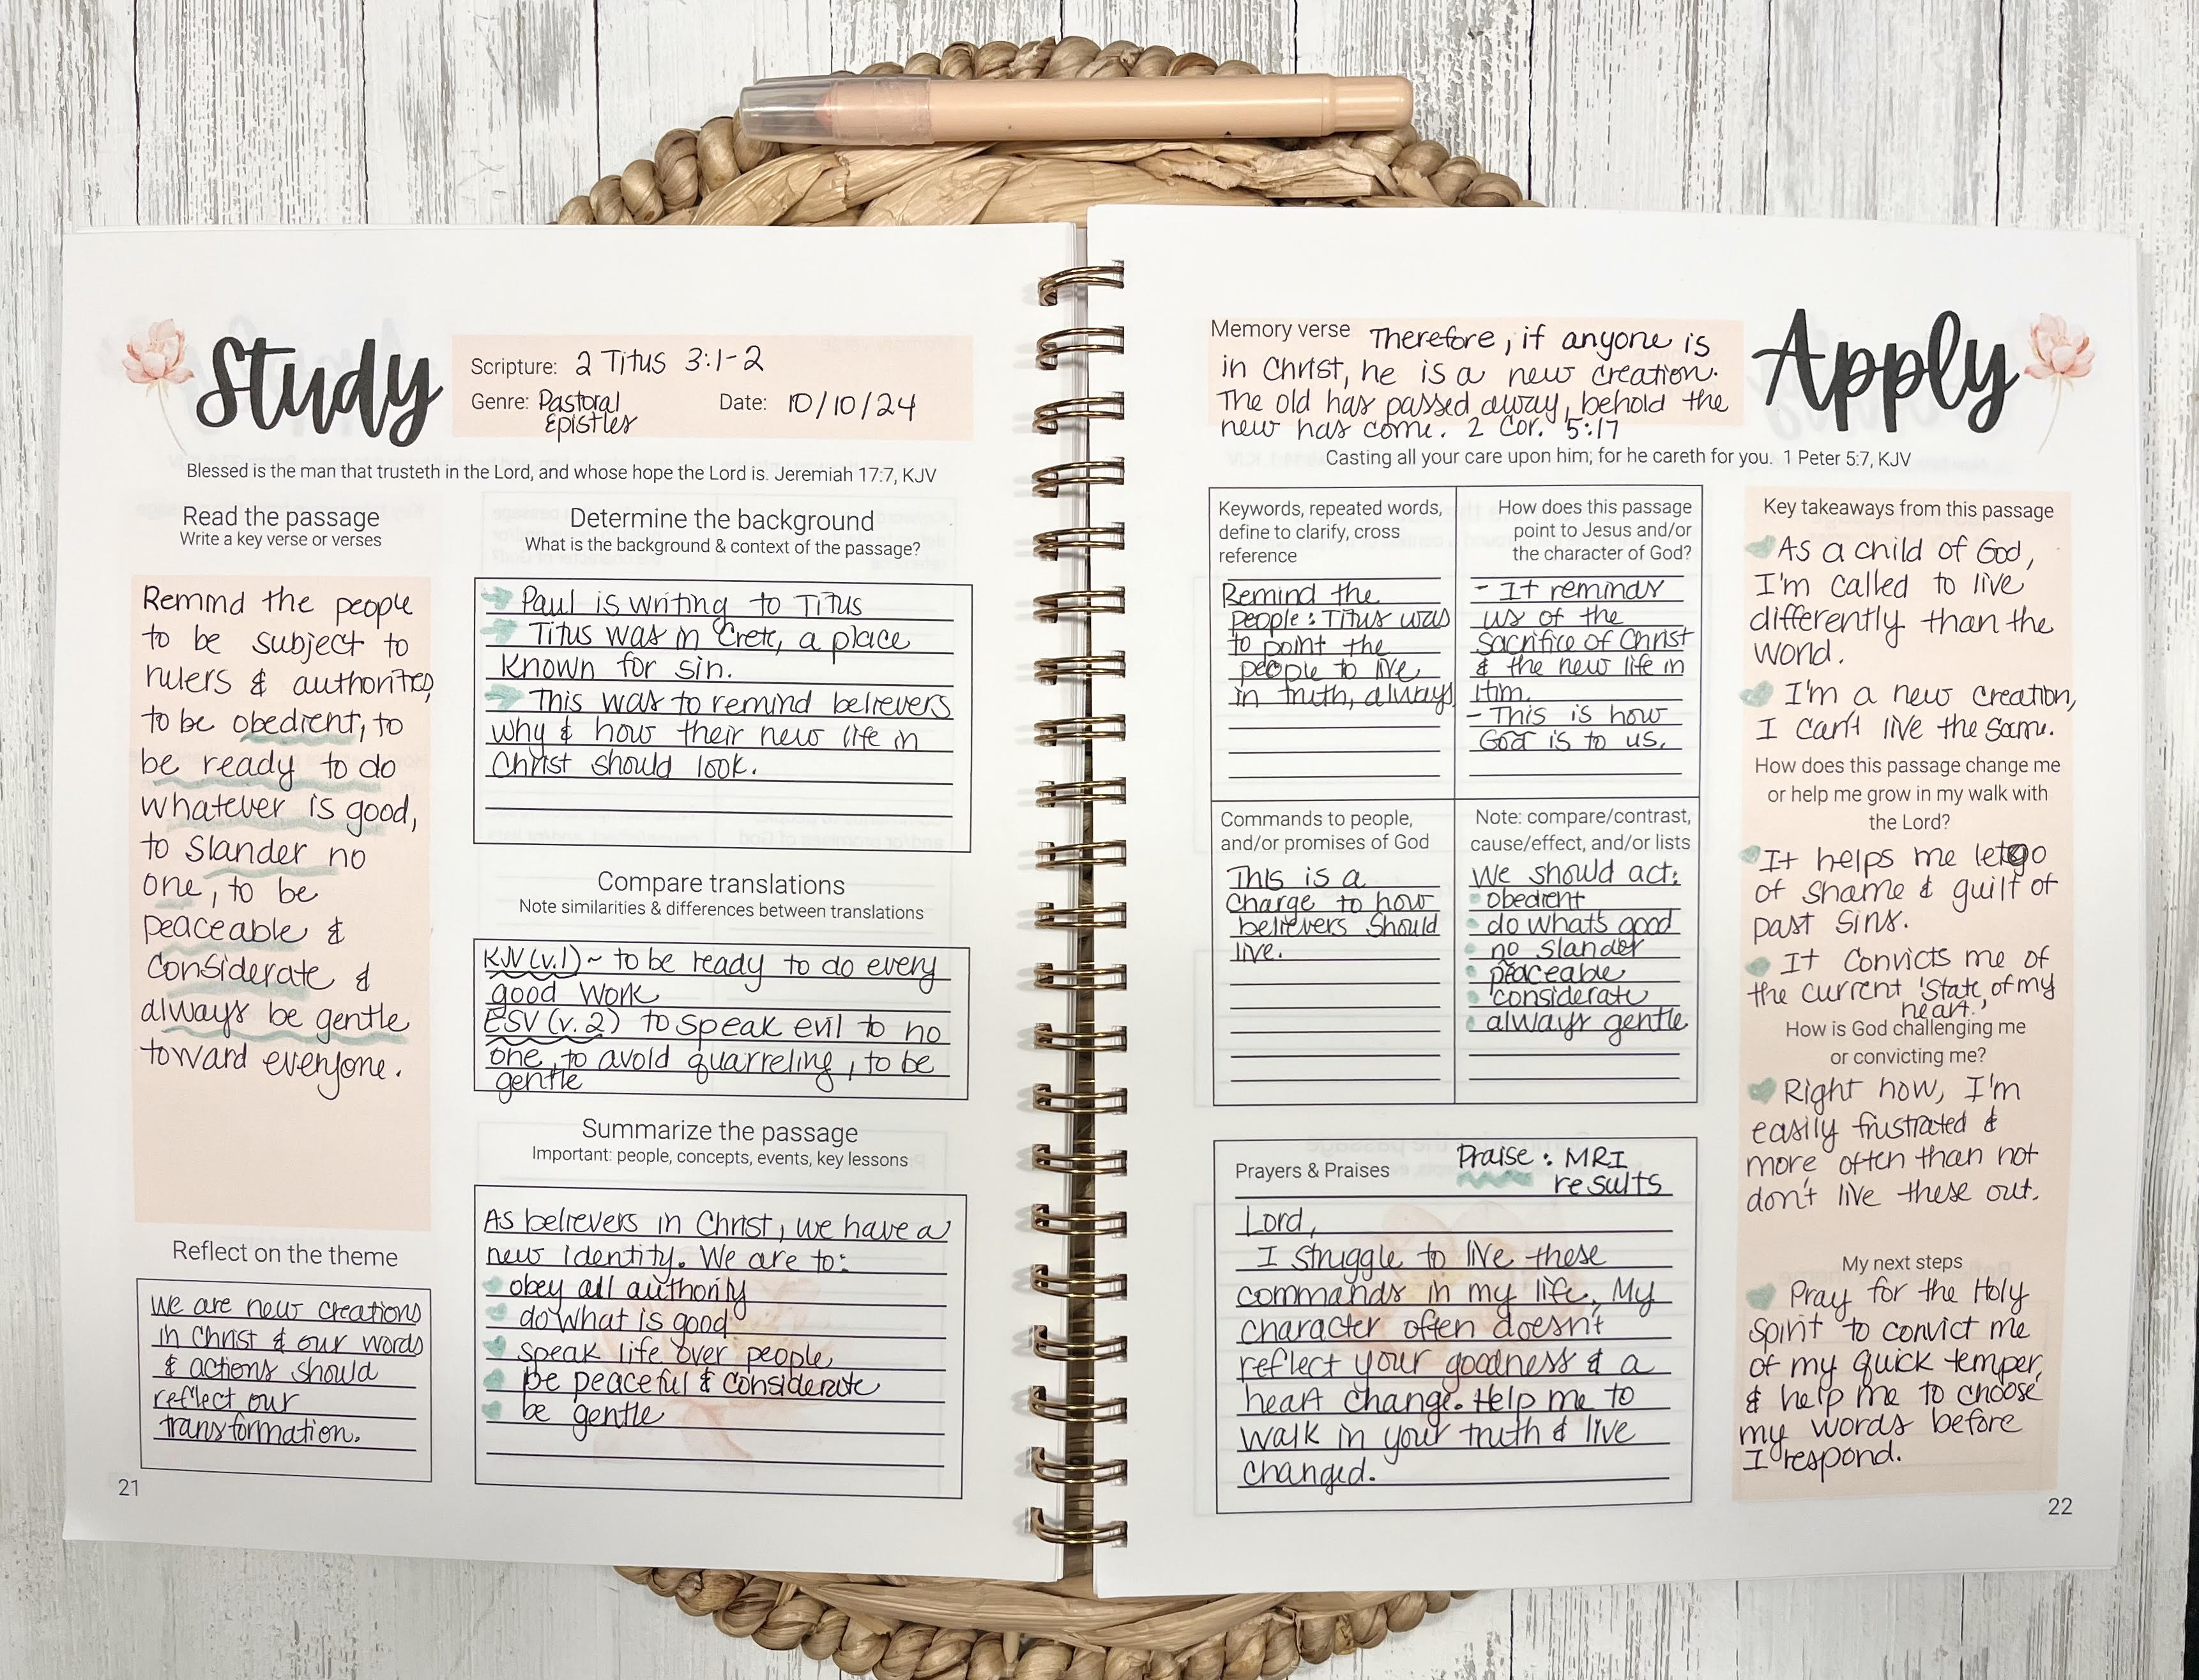 Study
Scripture: 2 Titus 3:1-2
Genre: Pastoral
Epistles
Date: 10/10/24
Blessed is the man that trusteth in the Lord, and whose hope the Lord is. Jeremiah 17:7, KJV
Read the passage
Write a key verse or verses
Remind the people
to be subject to
rulers & authorities,
to be obedient, to
be ready to do
whatever is good,
to slander no
one, to be
peaceable &
considerate &
always be gentle
toward everyone.
Reflect on the theme
We are new creations
in Christ & our words
& actions should
reflect our
transformation.
21
Determine the background
What is the background & context of the passage?
Paul is writing to Titus
Titus was in Crete, a place
known for sin.
This was to remind believers
why & how their new life in
Christ should look.
Compare translations
Note similarities & differences between translations
KJV (v.1) ~ to be ready to do every
good work
ESV (v. 2) to speak evil to no
one, to avoid quarreling, to be
gentle
Summarize the passage
Important: people, concepts, events, key lessons
As believers in Christ, we have a
new identity. We are to:
obey all authority
do what is good
speak life over people
be peaceful & considerate
be gentle
Memory verse Therefore, if anyone is
in Christ, he is a new creation.
The old has passed away, behold the
new has come. 2 Cor. 5:17
Apply
Casting all your care upon him; for he careth for you. 1 Peter 5:7, KJV
Keywords, repeated words,
define to clarify, cross
reference
Remind the
people: Titus was
to point the
people to live
in truth, always
How does this passage
point to Jesus and/or
the character of God?
- It reminds
us of the
sacrifice of Christ
& the new life in
Him.
- This is how
God is to us.
Commands to people,
and/or promises of God
This is a
charge to how
believers should
live.
Note: compare/contrast,
cause/effect, and/or lists
We should act:
obedient
do what's good
no slander
peaceable
considerate
always gentle
Prayers & Praises
Praise: MRI
results
Lord,
I struggle to live these
commands in my life. My
character often doesn't
reflect your goodness & a
heart change. Help me to
walk in your truth & live
changed.
Key takeaways from this passage
As a child of God,
I'm called to live
differently than the
world.
I'm a new creation,
I can't live the same.
How does this passage change me
or help me grow in my walk with
the Lord?
It helps me let go
of shame & guilt of
past sins.
It convicts me of
the current state of my
heart.
How is God challenging me
or convicting me?
Right now, I'm
easily frustrated &
more often than not
don't live these out.
My next steps
Pray for the Holy
Spirit to convict me
of my quick temper,
& help me to choose
my words before
I respond.
22